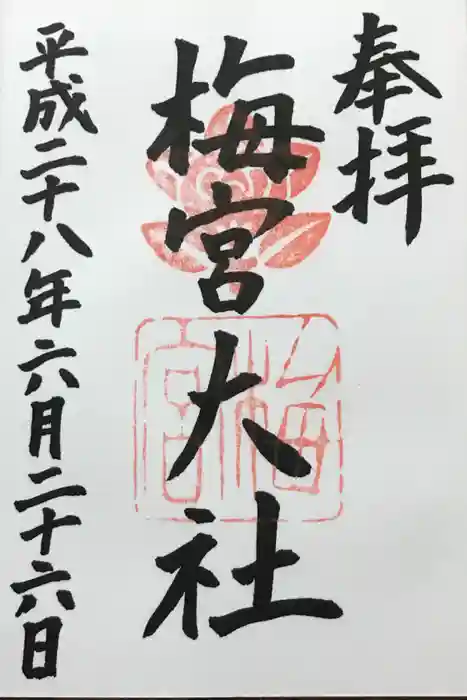 奉拝
梅宮大社
平成二十八年六月二十六日
梅宮